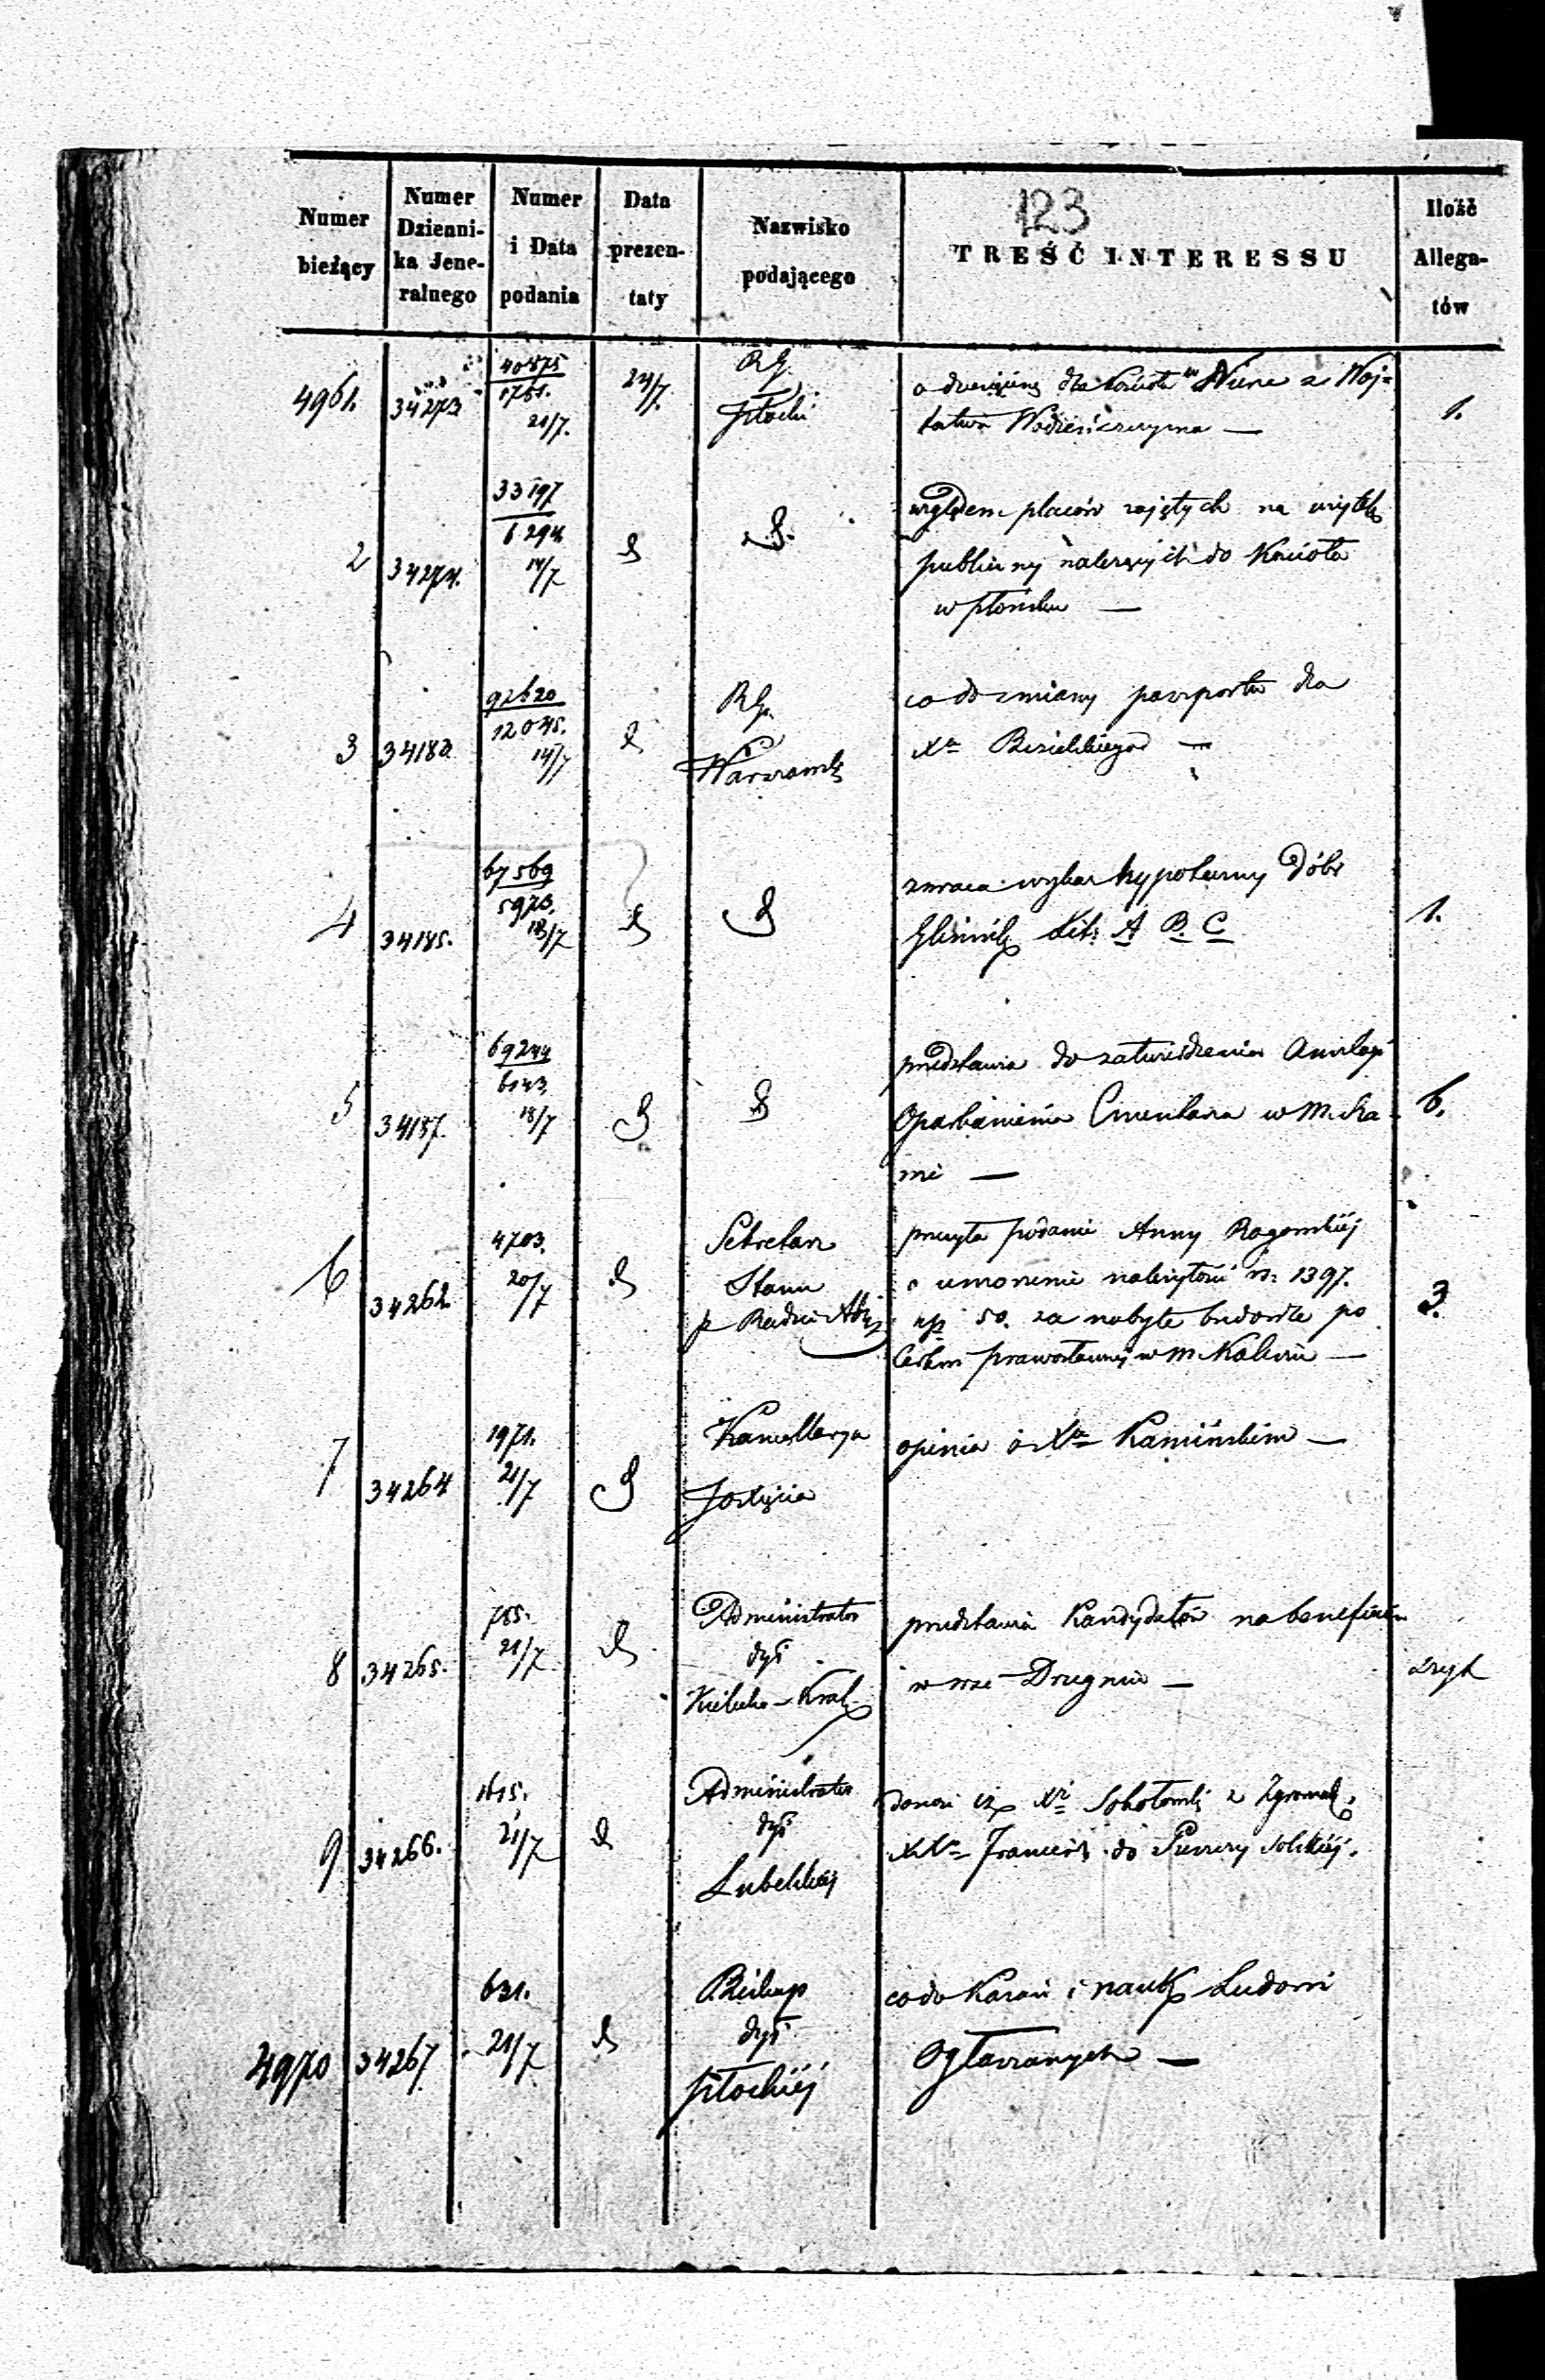 123
Numer bieżący
Numer Dzienni-ka Jene-ralnego
Numer i Data podania
Data prezen-taty
Nazwisko podającego
TREŚĆ INTERESSU
Ilość Allega-tów
4961. 34273 40575 1761. 21/7. 24/7. RG. Płocki
o dziesięcinę dla Kościoła w
1.
2 34274. 33197 6294 14/7
względem placów zajętych na użytek
publiczny należących do Kościoła
w Płońsku —
3 34182 92620 12045. 14/7 RG. Warszawski
co do zmiany paszportu dla
Xa —
4 34185. 67569 5973. 18/7
zwraca wykaz hypoteczny Dóbr
Lit: A B C
1.
5 34187. 69244 6143. 18/7
przedstawia do zatwierdzenia
Oparkanienia Cmentarza w M.
6.
6 34262. 4703. 20/7 Sekretarz Stanu
przesyła podanie Anny Rogowskiej
o umorzenie należytości rs: 1397.
kop 50. za nabyte budowle po
Cerkwi prawosławnej w M Kaliszu —
3.
7 34264 1971. 21/7 Kancellarya
opinia o Xu Kamińskim —
8 34265. 755. 21/7 Administrator dyi Kielecko-Krak
przedstawia Kandydatów na beneficium
w wsi Drugnia —
9 34266. 1615. 21/7 Administrator dyi Lubelskiej
donosi iż Xdz Sokołowski z Zgromadz.
XXy Francisz. do Puszczy Solskiej.
4970 34267 631. 21/7 Biskup dyi Płockiej
co do Kazań i nauk Ludowi
Ogłaszanych —